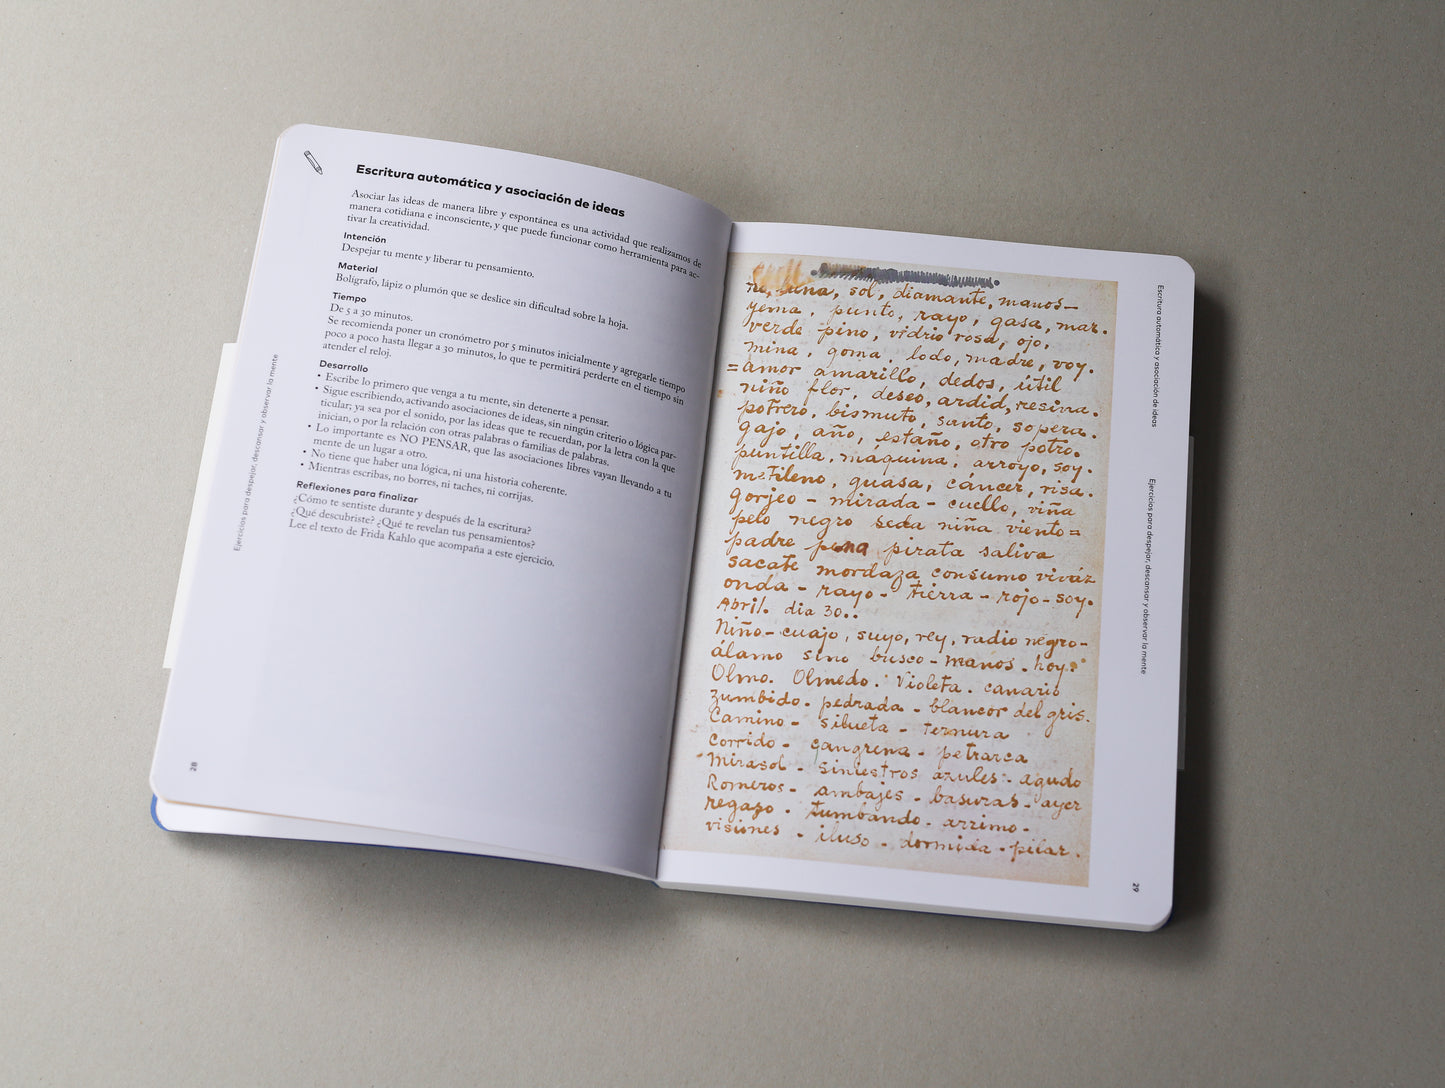 Escritura automática y asociación de ideas
Asociar las ideas de manera libre y espontánea es una actividad que realizamos de
manera cotidiana e inconsciente, y que puede funcionar como herramienta para ac-
tivar la creatividad.
Intención
Despejar tu mente y liberar tu pensamiento.
Material
Bolígrafo, lápiz o plumón que se deslice sin dificultad sobre la hoja.
Tiempo
De 5 a 30 minutos.
Se recomienda poner un cronómetro por 5 minutos inicialmente y agregarle tiempo
poco a poco hasta llegar a 30 minutos, lo que te permitirá perderte en el tiempo sin
atender el reloj.
Desarrollo
• Escribe lo primero que venga a tu mente, sin detenerte a pensar.
• Sigue escribiendo, activando asociaciones de ideas, sin ningún criterio o lógica par-
ticular; ya sea por el sonido, por las ideas que te recuerdan, por la letra con la que
inician, o por la relación con otras palabras o familias de palabras.
• Lo importante es NO PENSAR, que las asociaciones libres vayan llevando a tu
mente de un lugar a otro.
• No tiene que haber una lógica, ni una historia coherente.
• Mientras escribas, no borres, ni taches, ni corrijas.
Reflexiones para finalizar
¿Cómo te sentiste durante y después de la escritura?
¿Qué descubriste? ¿Qué te revelan tus pensamientos?
Lee el texto de Frida Kahlo que acompaña a este ejercicio.
Ejercicios para despejar, descansar y observar la mente
28
sol, diamante, manos-
yema, punto, rayo, gasa, mar.
verde pino, vidrio rosa, ojo,
mina, goma, lodo, madre, voy.
=amor amarillo, dedos, útil
niño flor, deseo, ardid, resina.
potrero, bismuto, santo, sopera.
gajo, año, estaño, otro potro.
puntilla, máquina, arroyo, soy.
metileno, guasa, cáncer, risa.
gorjeo - mirada - cuello, viña
pelo negro seda niña viento=
padre pena pirata saliva
sacate mordaza consumo viváz
onda - rayo - tierra - rojo - soy.
Abril. dia 30..
Niño - cuajo, suyo, rey, radio negro-
álamo sino busco - manos. hoy.
Olmo. Olmedo. Violeta. canario
zumbido. pedrada - blancor del gris.
Camino - silueta - ternura
corrido - gangrena - petrarca
mirasol - siniestros azules - agudo
Romeros - ambajes - basuras - ayer
regazo - tumbando - arrimo -
visiones - iluso - dormida - pilar.
Escritura automática y asociación de ideas
Ejercicios para despejar, descansar y observar la mente
29